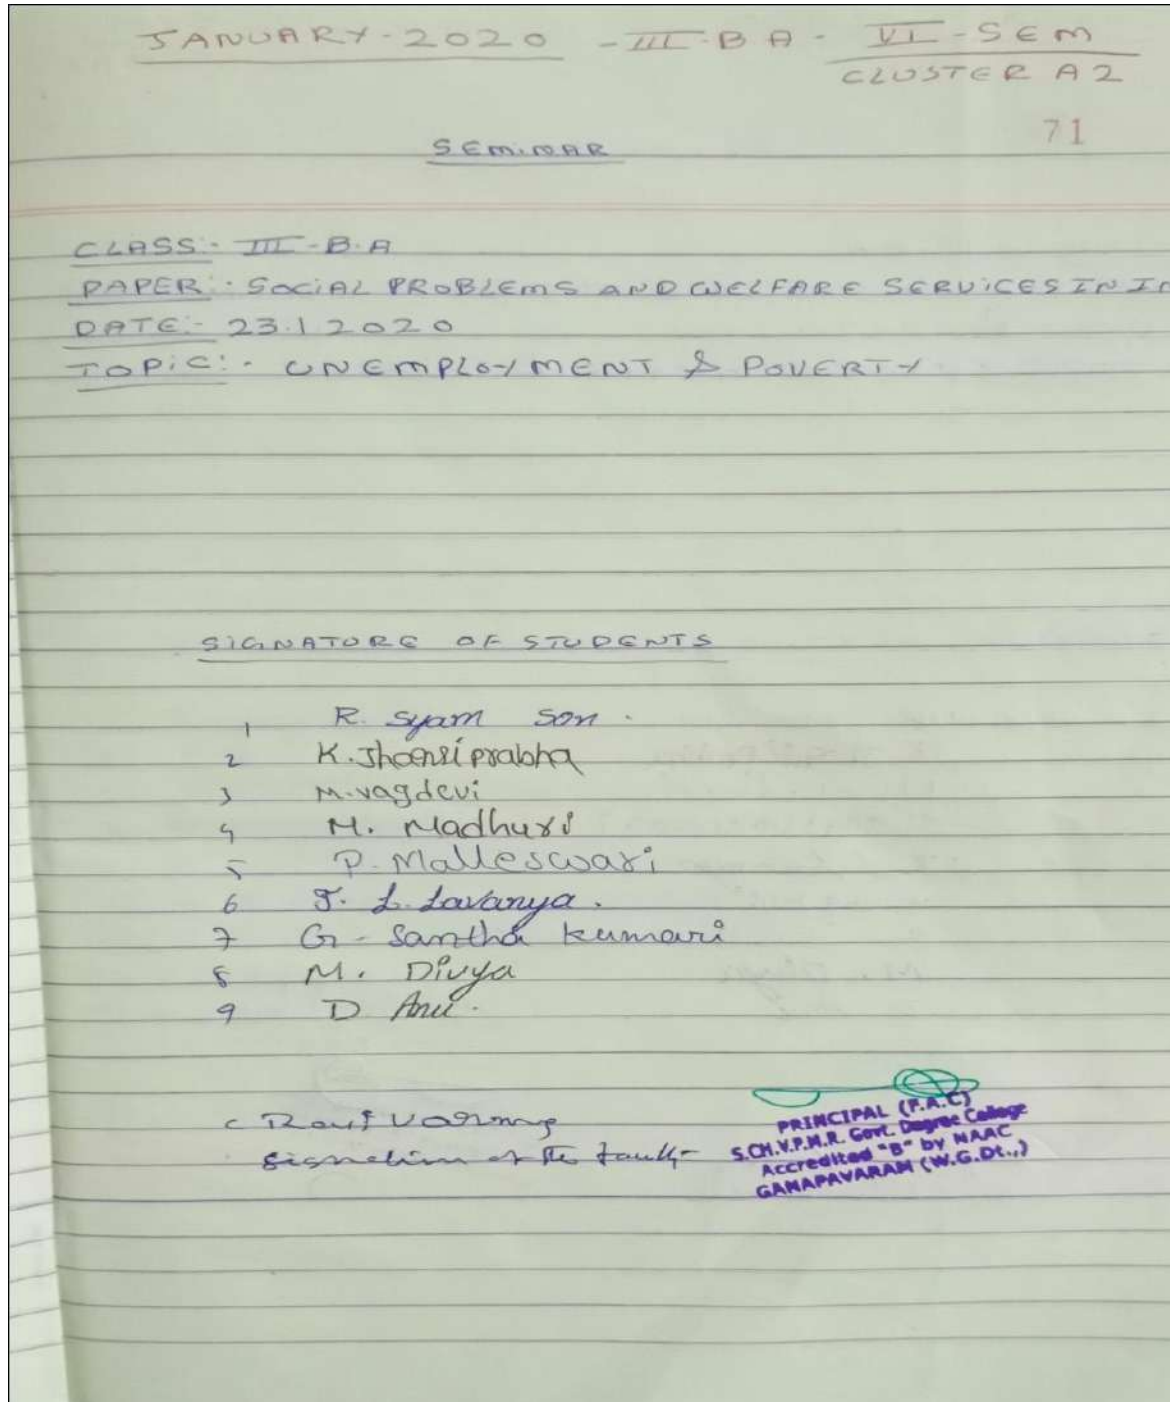 JANUARY-2020 - III-BA- VI-SEM
CLUSTER A2
71
SEMINAR
CLASS:- III-B.A
PAPER:- SOCIAL PROBLEMS AND WELFARE SERVICES IN I
DATE:- 23.1.2020
TOPIC:- UNEMPLOYMENT & POVERTY
SIGNATURE OF STUDENTS
1 R. Syam Son.
2 K. Jhansi prabha
3 M. vagdevi
4 M. Madhuri
5 P. Malleswari
6 J. L. Lavanya.
7 G. Santha kumari
8 M. Divya
9 D Anu.
C Ravi Varma
PRINCIPAL (F.A.C)
S.CH.V.P.M.R. Govt. Degree College
Accredited "B" by NAAC
GANAPAVARAM (W.G.Dt.,)
signature of the